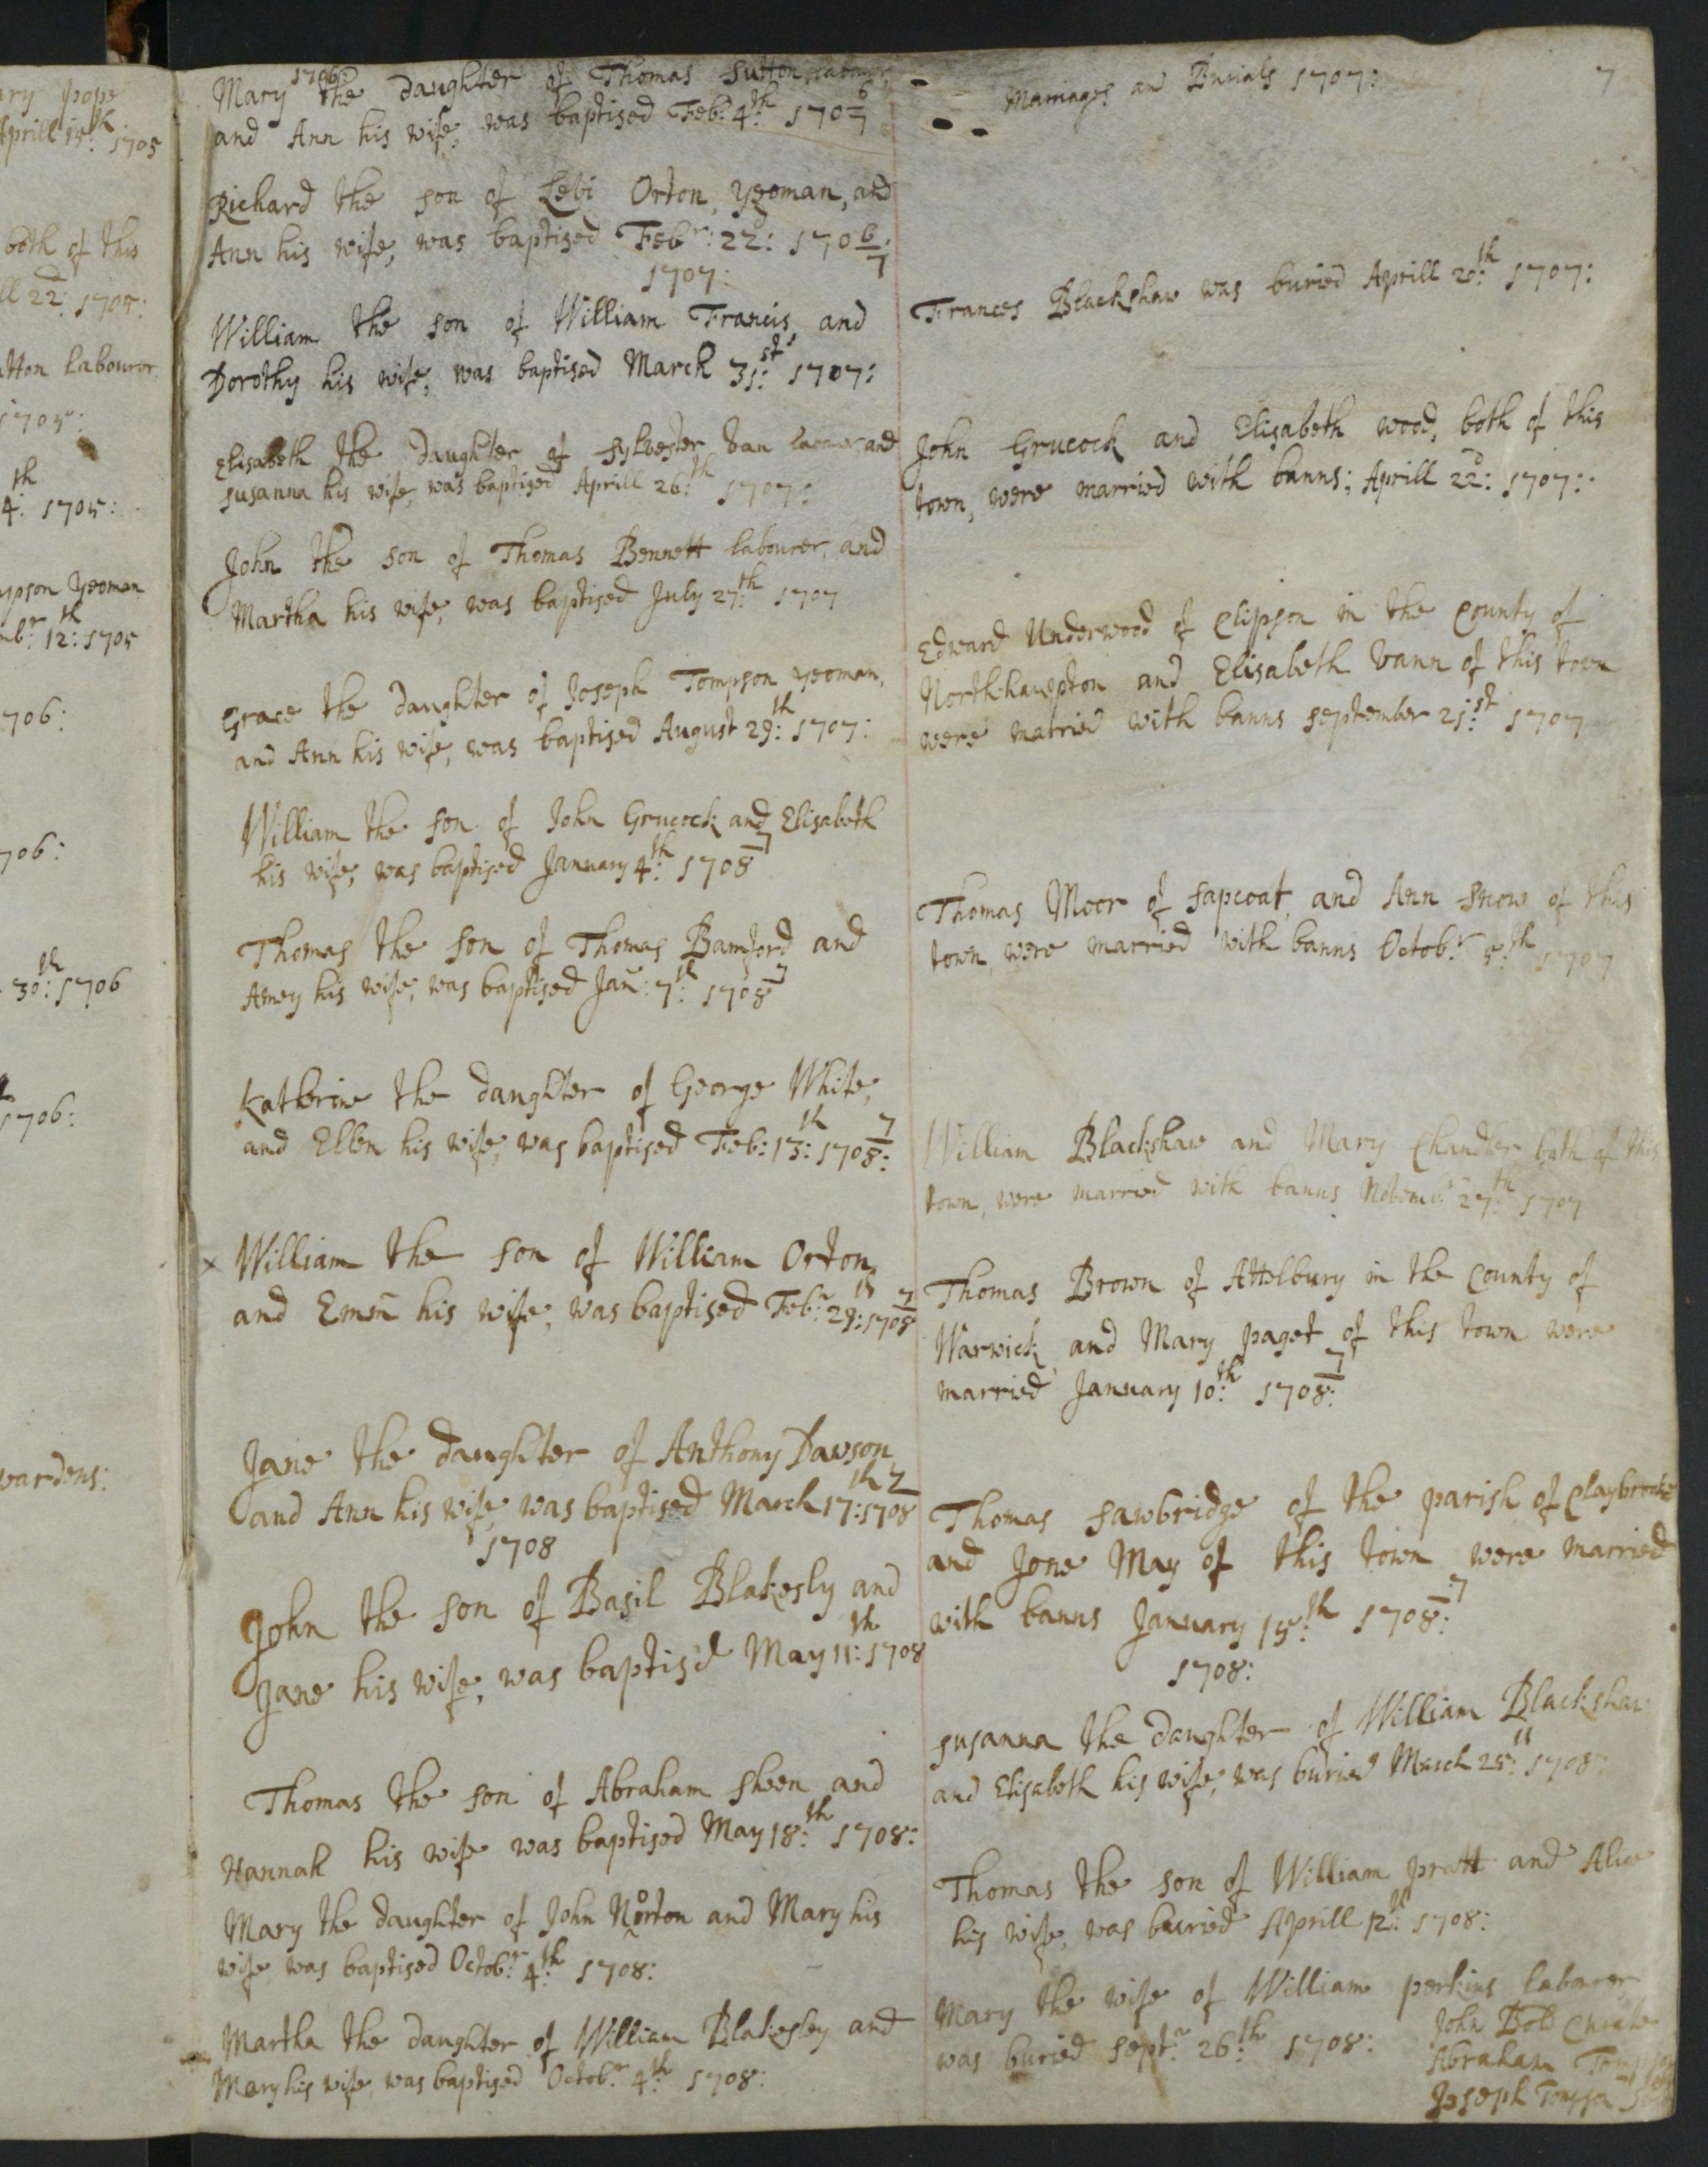 ary pope
Aprill 15th: 1705
both of this
ll 22d: 1705:
utton labouror,
1705:
4th: 1705:
mpson yeoman
mbr: 12th: 1705
706:
706:
30th: 1706
1706:
wardens:
1706:
Mary the daughter of Thomas Sutton, labourer
and Ann his wife, was baptised Feb: 4th: 170 6/7
Richard the son of Levi Orton, yeoman, and
Ann his wife, was baptised Febr: 22d: 170 6/7:
1707:
William the son of William Francis, and
Dorothy his wife, was baptised March 31st: 1707:
Elisabeth the daughter of Sylvester Van labourer and
Susanna his wife, was baptised Aprill 26th: 1707:
John the son of Thomas Bennett labourer, and
Martha his wife, was baptised July 27th: 1707
Grace the daughter of Joseph Tompson yeoman,
and Ann his wife, was baptised August 29th: 1707:
William the son of John Grucock and Elisabeth
his wife, was baptised January 4th: 170 7/8
Thomas the son of Thomas Bamford and
Amey his wife, was baptised Jan: 7th: 170 7/8
Katherine the daughter of George White,
and Ellen his wife, was baptised Feb: 13th: 170 7/8:
x William the son of William Orton,
and Emm his wife, was baptised Febr: 29th: 170 7/8
Jane the daughter of Anthony Dawson
and Ann his wife, was baptised March 17th: 170 7/8
1708
John the son of Basil Blakesly and
Jane his wife, was baptis'd May 11th: 1708
Thomas the son of Abraham Sheen and
Hannah his wife was baptised May 18th: 1708:
Mary the daughter of John Norton and Mary his
wife, was baptised Octobr: 4th: 1708:
Martha the daughter of William Blakesley and
Mary his wife, was baptised Octobr: 4th: 1708:
Marriages and Burials 1707:
7
Frances Blackshaw was buried Aprill 20th: 1707:
John Grucock and Elisabeth Wood, both of this
town, were married with banns; Aprill 22d: 1707:
Edward Underwood of Clipson in the County of
Northhampton and Elisabeth Vann of this town
were married with banns September 21st: 1707
Thomas Moor of Sapcoat, and Ann Snow of this
town, were married with banns Octobr: 5th: 1707
William Blackshaw and Mary Chandler both of this
town, were married with banns Novembr: 27th: 1707
Thomas Brown of Attelbury in the County of
Warwick, and Mary Paget of this town were
married January 10th: 170 7/8:
Thomas Sawbridge of the parish of Claybrooke
and Jone May of this town were married
with banns January 15th: 170 7/8:
1708:
Susanna the daughter of William Blackshaw
and Elisabeth his wife, was buried March 25th: 1708:
Thomas the son of William Pratt and Alice
his wife, was buried Aprill 12th: 1708:
Mary the wife of William Perkins labourer
was buried Septr: 26th: 1708:
John Dod Curate
Abraham Tompson
Joseph